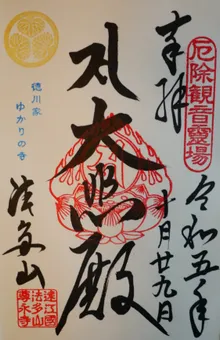 奉拝
厄除観音霊場
令和五年
十月廿九日
大悲殿
徳川家
ゆかりの寺
法多山
遠江國
法多山
尊永寺